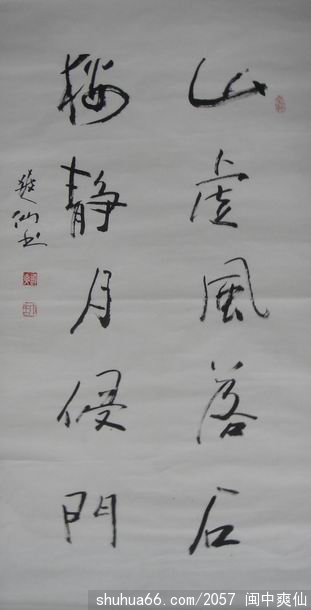 山虚風落石
楼静月侵門
爽仙书
shuhua66.com/2057 闽中爽仙